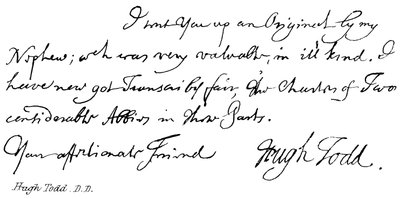 I sent You up an Original by my
Nephew; wch was very valuable, in it's kind. I
have now got Transcrib'd fair, the Charters of Two
considerable Abbies in those Parts.
Your affectionate Friend Hugh Todd.
Hugh Todd. D.D.